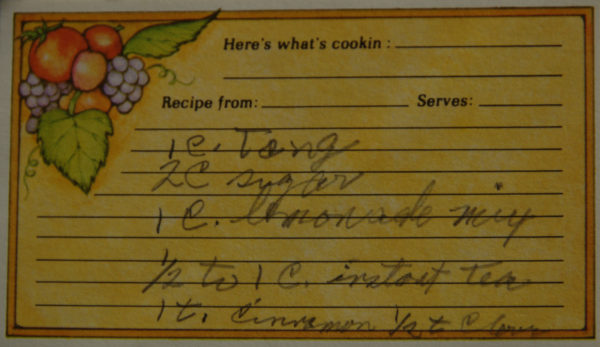 Here's what's cookin :
Recipe from: Serves:
1 C. Tang
2 C sugar
1 C. lemonade mix
1/2 to 1 C. instant Tea
1 t. Cinnamon 1/2 t Clove